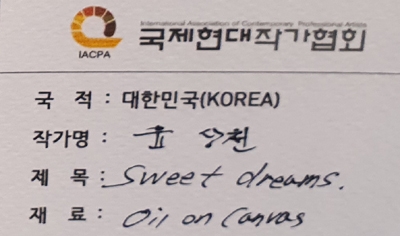 International Association of Contemporary Professional Artists
국제현대작가협회
IACPA
국 적 : 대한민국(KOREA)
작가명 :
제 목 : Sweet dreams.
재 료 : Oil on Canvas